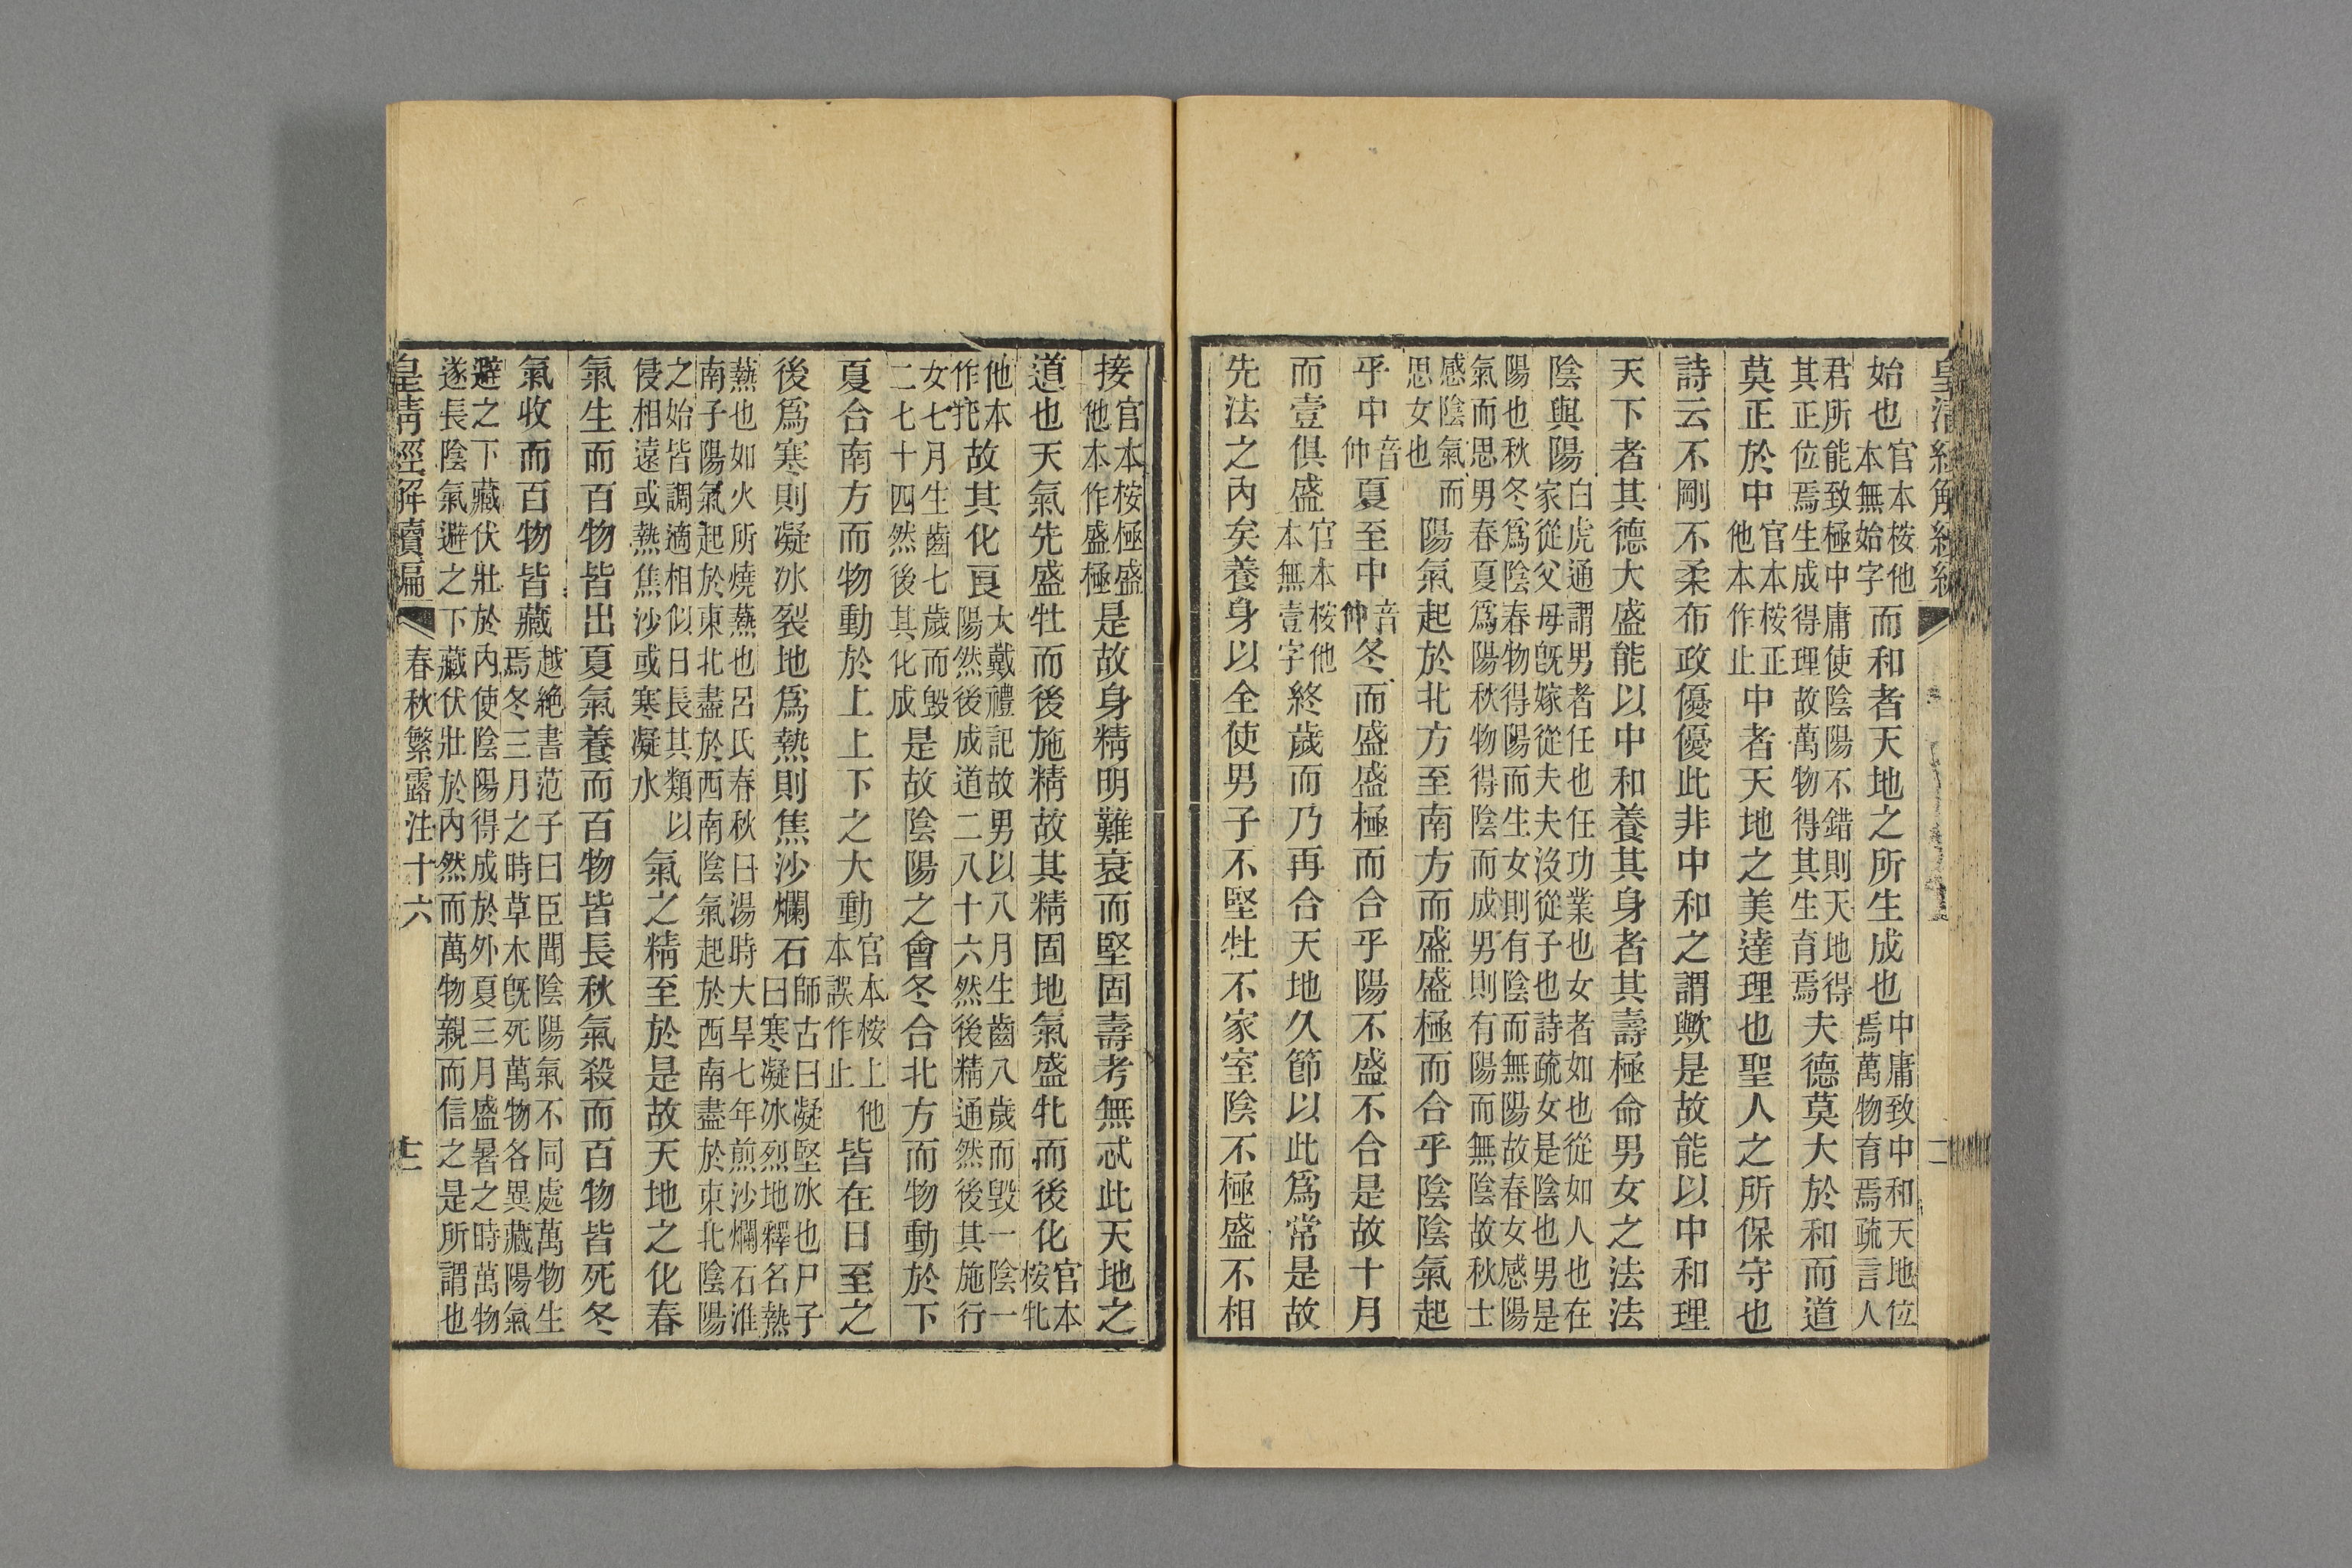 皇清經解續編
始也官本桉他本無始字而和者天地之所生成也中庸致中和天地位焉萬物育焉疏言人
君所能致極中庸使陰陽不錯則天地得其正位焉生成得理故萬物得其生育焉夫德莫大於和而道
莫正於中官本桉正他本作止中者天地之美達理也聖人之所保守也
詩云不剛不柔布政優優此非中和之謂歟是故能以中和理
天下者其德大盛能以中和養其身者其壽極命男女之法法
陰與陽白虎通謂男者任也任功業也女者如也從如人也在家從父母旣嫁從夫夫沒從子也詩疏女是陰也男是
陽也秋冬爲陰春物得陽而生女則有陰而無陽故春女感陽氣而思男春夏爲陽秋物得陰而成男則有陽而無陰故秋士
感陰氣而思女也陽氣起於北方至南方而盛盛極而合乎陰陰氣起
乎中音仲夏至中音仲冬而盛盛極而合乎陽不盛不合是故十月
而壹俱盛官本桉他本無壹字終歲而乃再合天地久節以此爲常是故
先法之內矣養身以全使男子不堅牡不家室陰不極盛不相
接官本桉極盛他本作盛極是故身精明難衰而堅固壽考無忒此天地之
道也天氣先盛牡而後施精故其精固地氣盛牝而後化官本桉牝
他本作牦故其化良大戴禮記故男以八月生齒八歲而毀一陰一陽然後成道二八十六然後精通然後其施行
女七月生齒七歲而毀二七十四然後其化成是故陰陽之會冬合北方而物動於下
夏合南方而物動於上上下之大動官本桉上他本誤作止皆在日至之
後爲寒則凝冰裂地爲熱則焦沙爛石師古曰凝堅冰也尸子曰寒凝冰烈地釋名熱
爇也如火所燒爇也呂氏春秋曰湯時大旱七年煎沙爛石淮南子陽氣起於東北盡於西南陰氣起於西南盡於東北陰陽
之始皆調適相似日長其類以侵相遠或熱焦沙或寒凝水氣之精至於是故天地之化春
氣生而百物皆出夏氣養而百物皆長秋氣殺而百物皆死冬
氣收而百物皆藏越絶書范子曰臣聞陰陽氣不同處萬物生焉冬三月之時草木旣死萬物各異藏陽氣
避之下藏伏壯於內使陰陽得成於外夏三月盛暑之時萬物遂長陰氣避之下藏伏壯於內然而萬物親而信之是所謂也
皇淸經解續編 春秋繁露注十六 十二